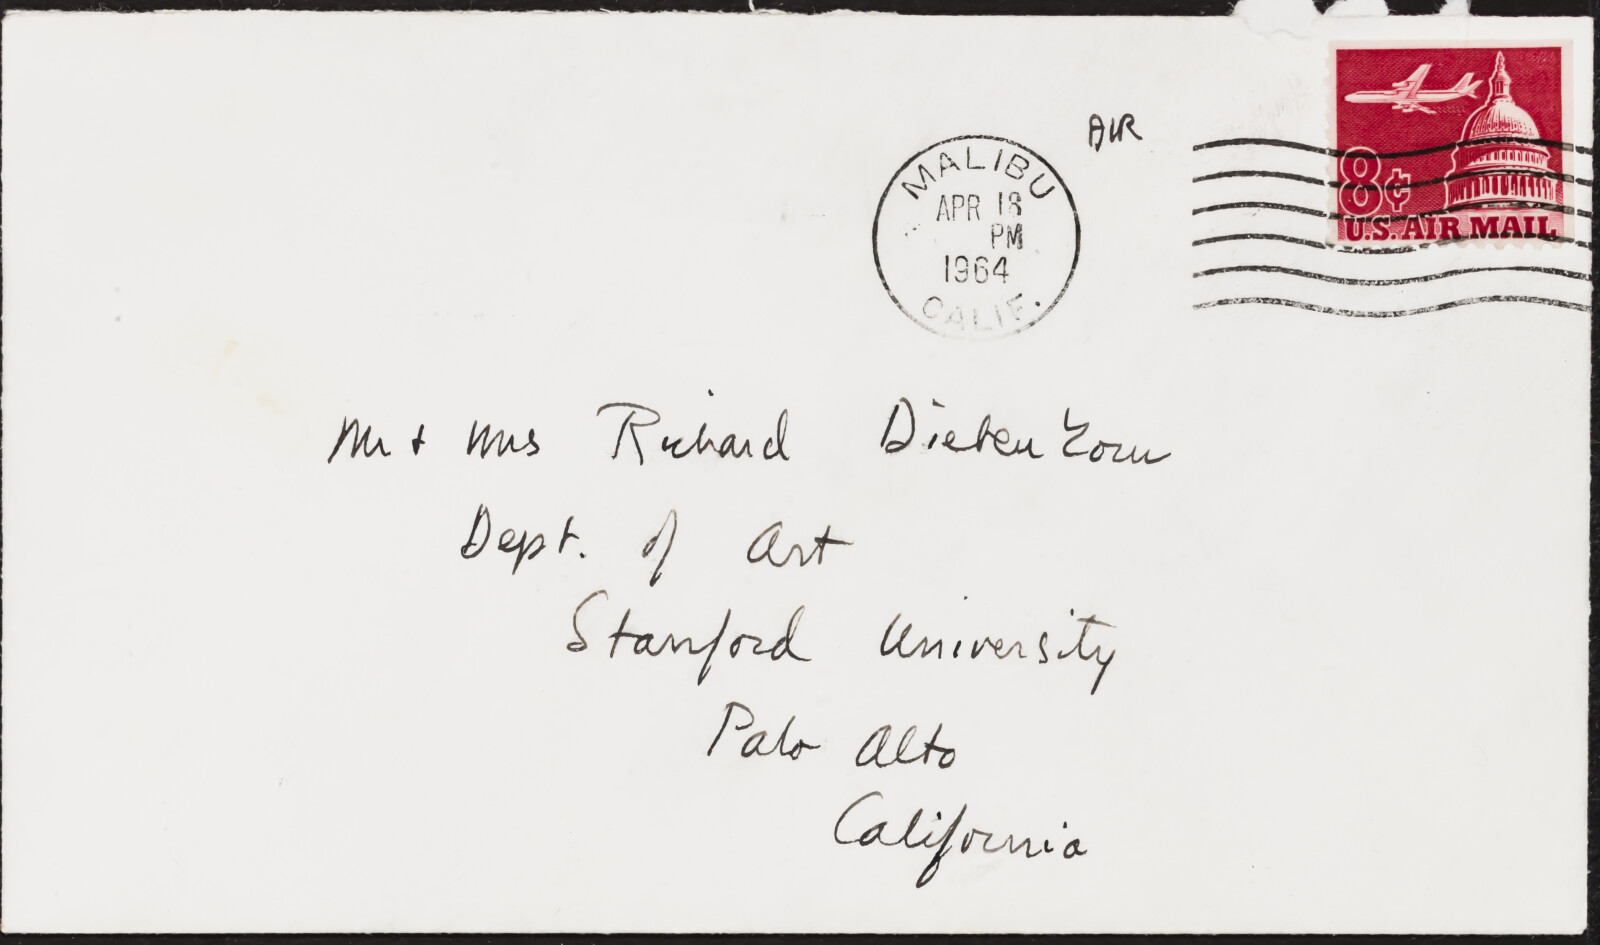 AIR
MALIBU
APR 18
PM
1964
CALIF.
8¢
U.S. AIR MAIL
Mr + Mrs Richard Diebenkorn
Dept. of Art
Stanford University
Palo Alto
California